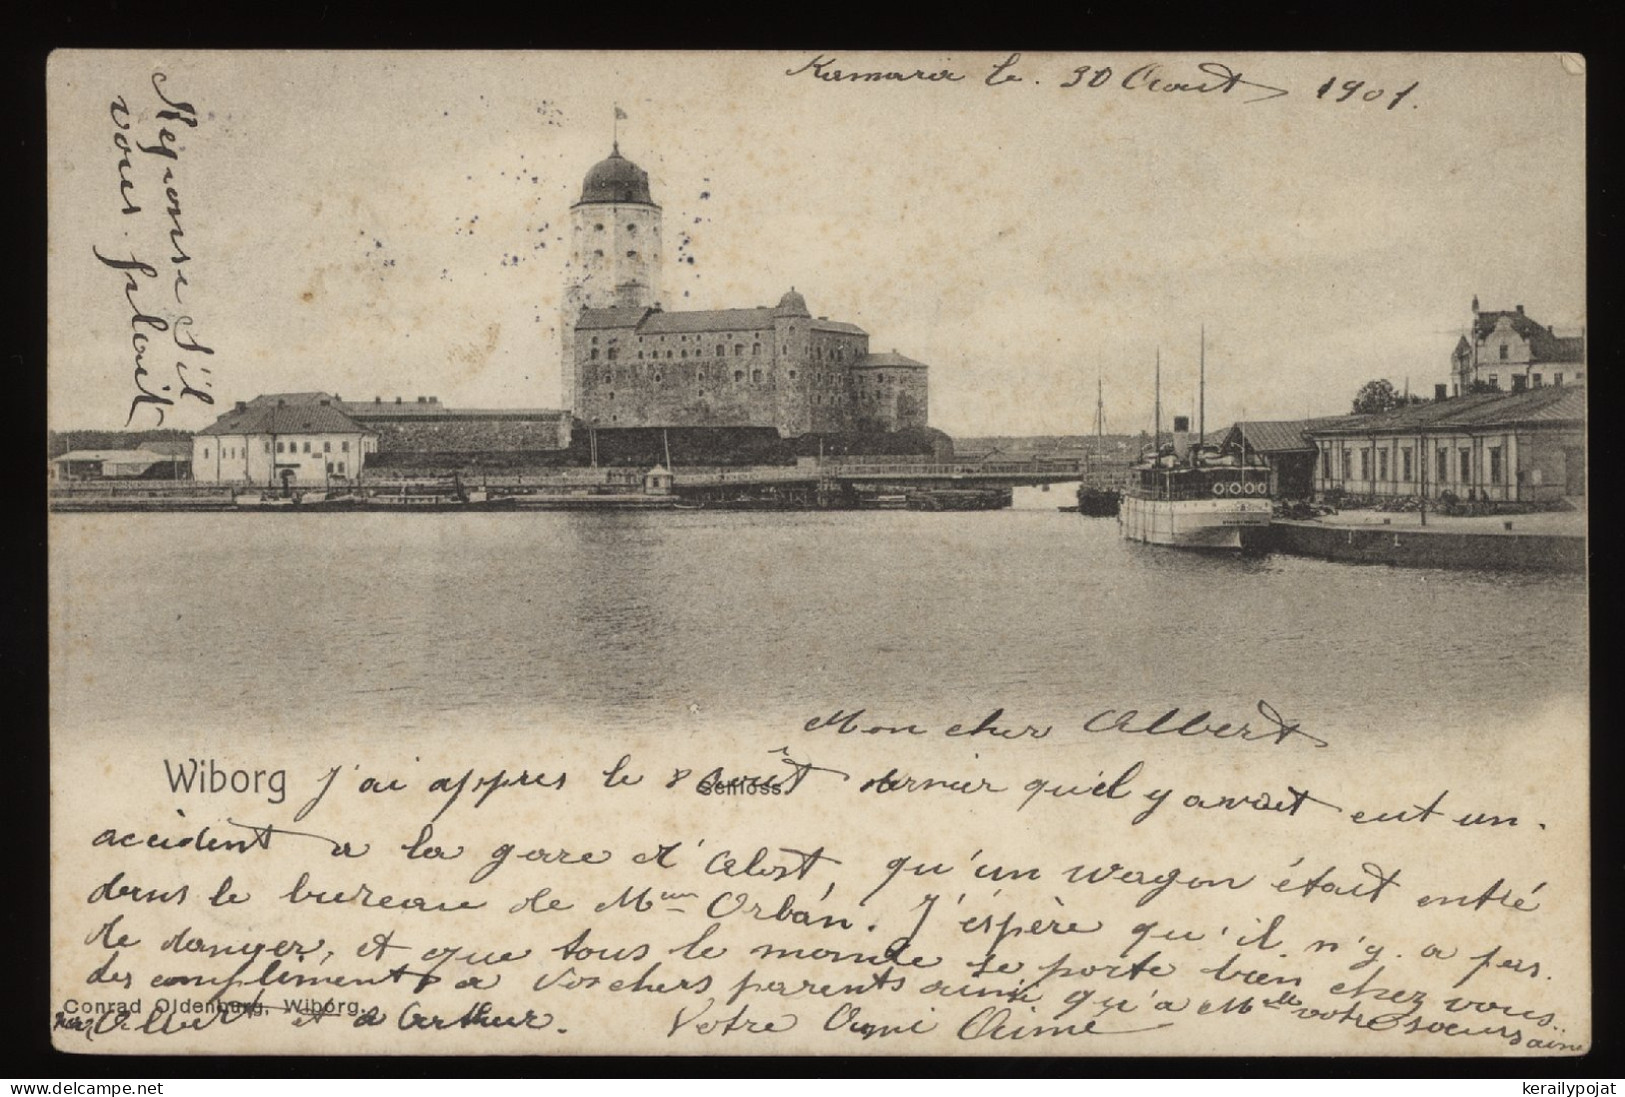 Kamara le. 30 Aout 1901.
Réponse S'il
vous. plait
Mon cher Albert
Wiborg
Schloss.
J'ai appris le 8 Août dernier qu'il y avait eut un.
accident a la gare d'Alost, qu'un wagon était entré
dans le bureau de Mr Orbán. J'éspère qu'il n'y. a pas.
de danger, et que tous le monde se porte bien chez vous.
des compliments a Vos chers parents ainsi qu'a Mlle votre soeur
Conrad Oldenburg, Wiborg.
et a Arthur. Votre Ami Aimé